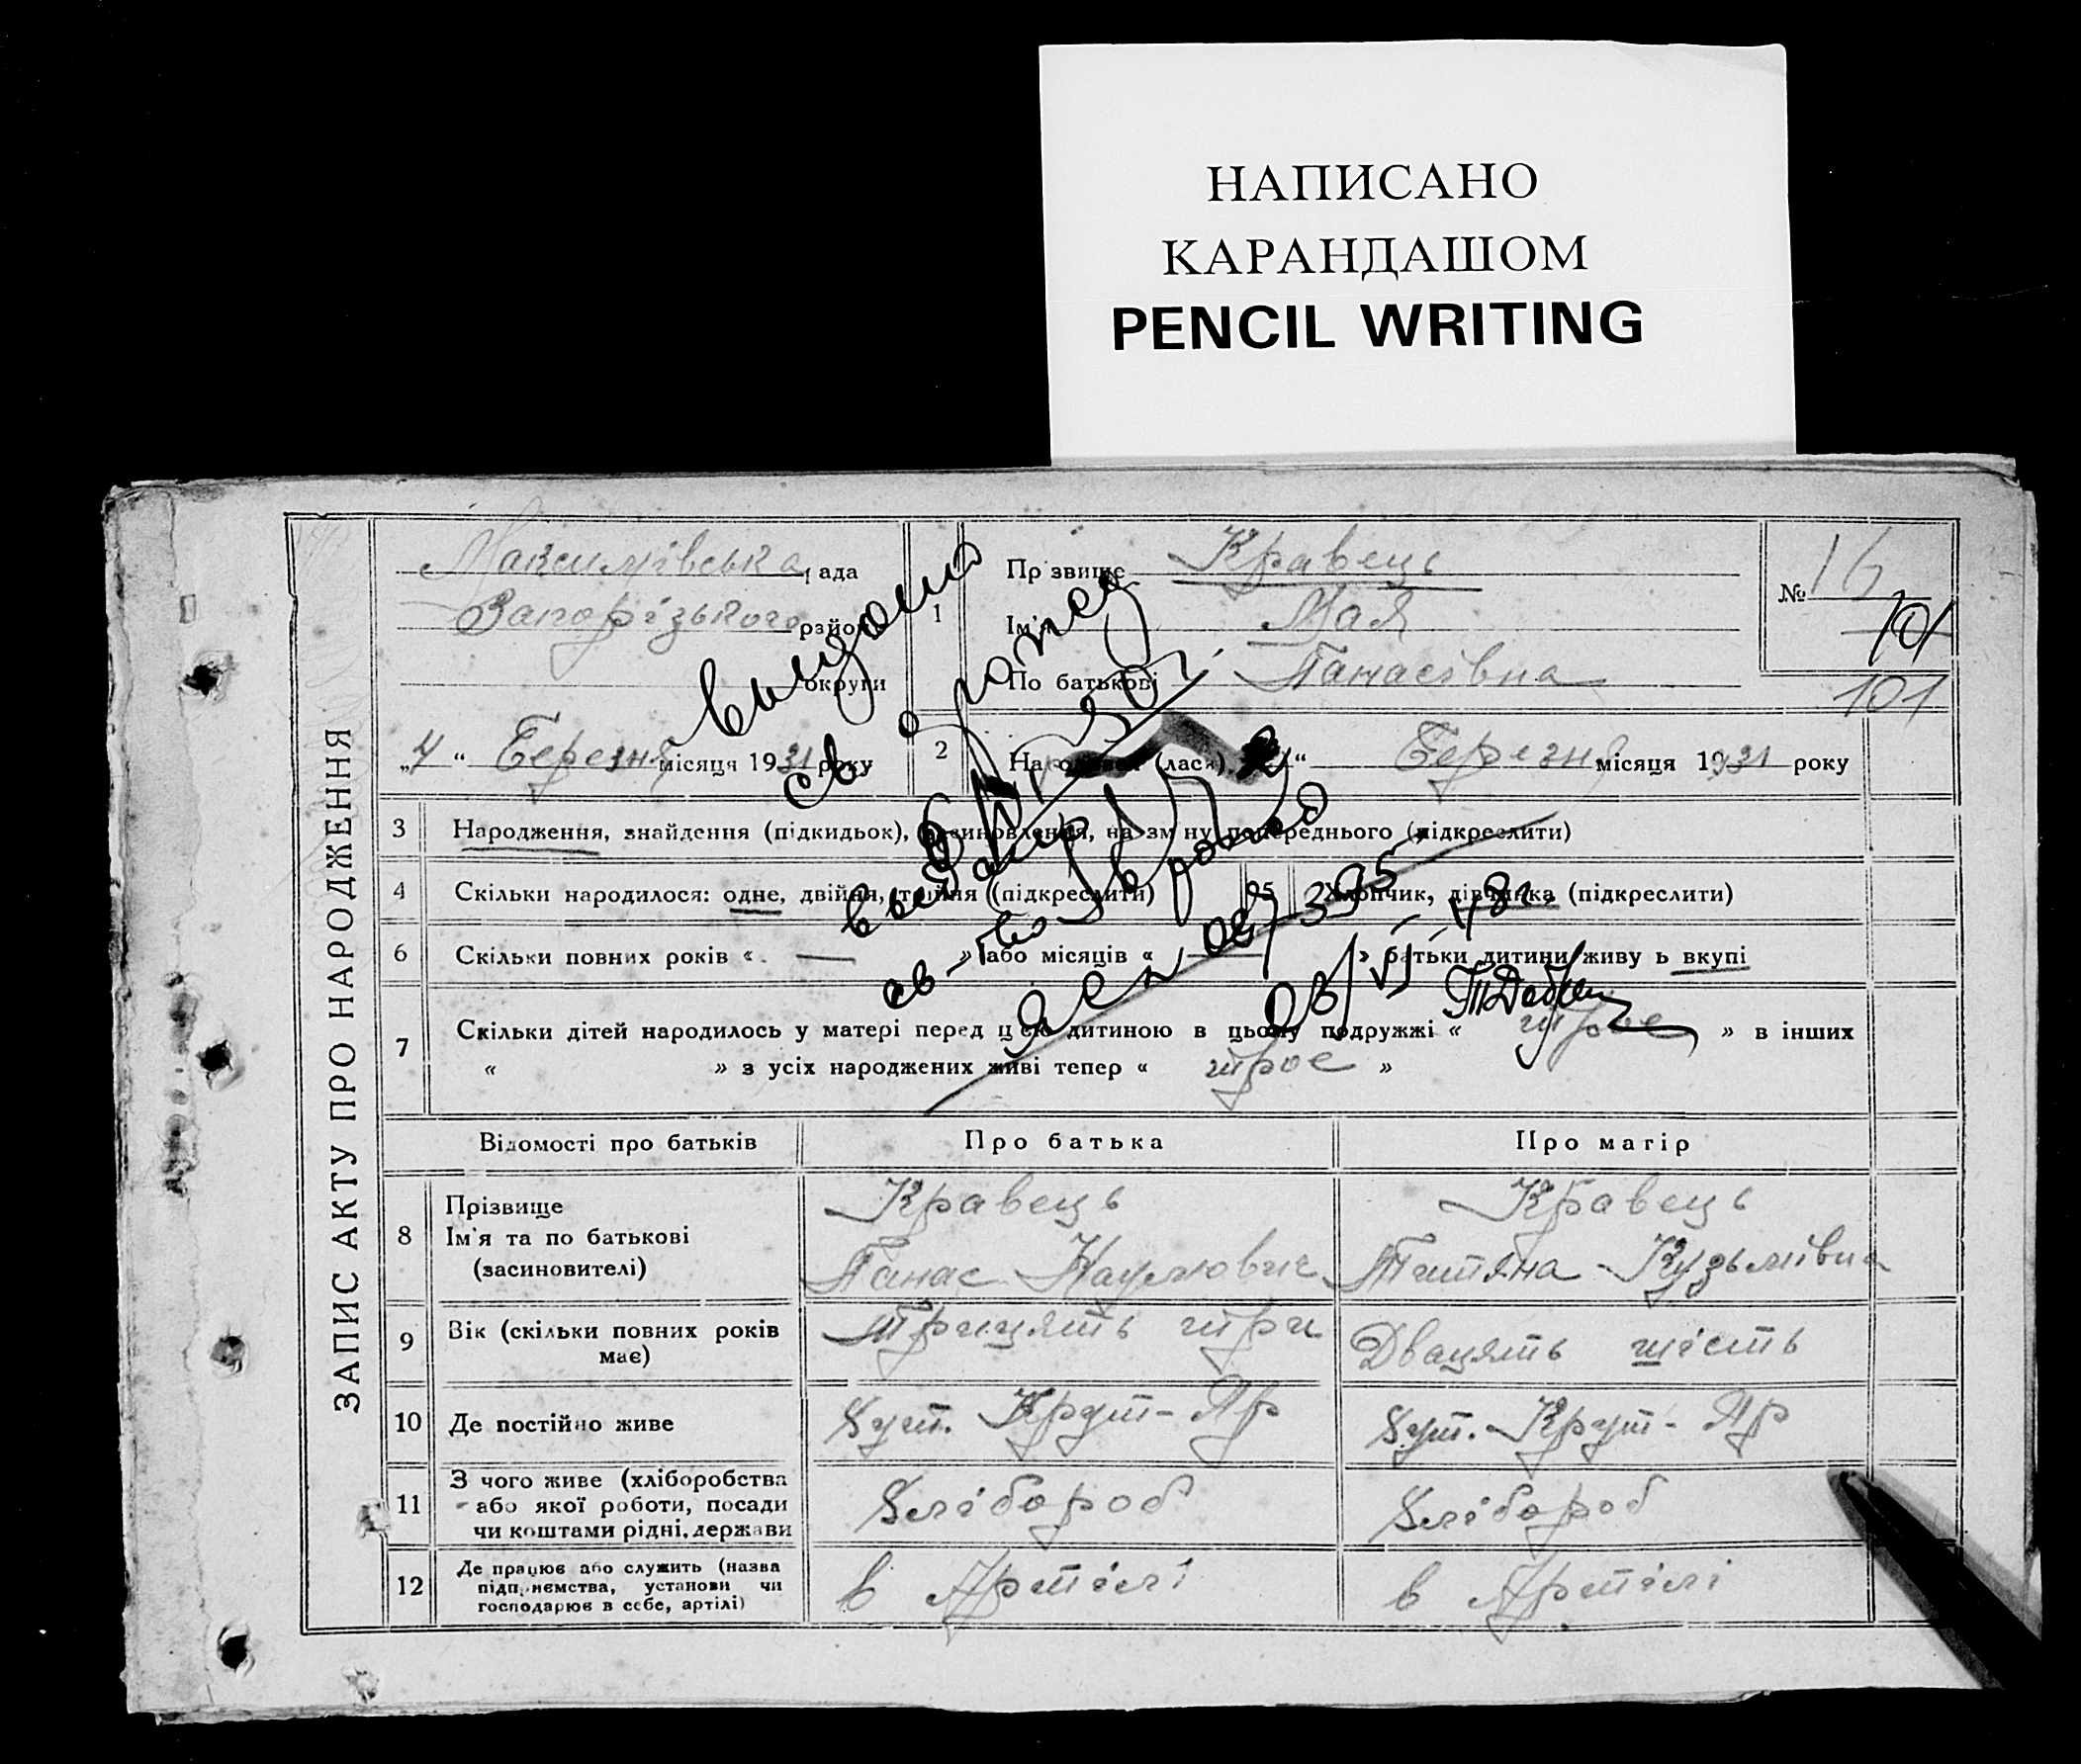 НАПИСАНО
КАРАНДАШОМ
PENCIL WRITING
ЗАПИС АКТУ ПРО НАРОДЖЕННЯ
Максимівська рада
Запорізького району
округи
„4“ Березня місяця 1931 року
1 Прізвище Кравець
Ім'я Мая
По батькові Панасівна
№ 16
101
101
2 “ Березня місяця 1931 року
3 Народження, знайдення (підкидьок), усиновлення, на зміну попереднього (підкреслити)
4 Скільки народилося: одне, двійня, трійня (підкреслити) 5 Хлопчик, дівчинка (підкреслити)
6 Скільки повних років « — » або місяців « — » батьки дитини живуть вкупі
7 Скільки дітей народилось у матері перед цією дитиною в цьому подружжі « трое » в інших
« » з усіх народжених живі тепер « трое »
Відомості про батьків Про батька Про матір
8 Прізвище Ім'я та по батькові (засиновителі) Кравець Панас Наумович Кравець Татяна Кузьмівна
9 Вік (скільки повних років має) Трицять три Двацять шість
10 Де постійно живе Хут. Крут-Яр Хут. Крут-Яр
11 З чого живе (хліборобства або якої роботи, посади чи коштами рідні, держави Хлібороб Хлібороб
12 Де працює або служить (назва підприємства, установи чи господарює в себе, артілі) в Артілі в Артілі